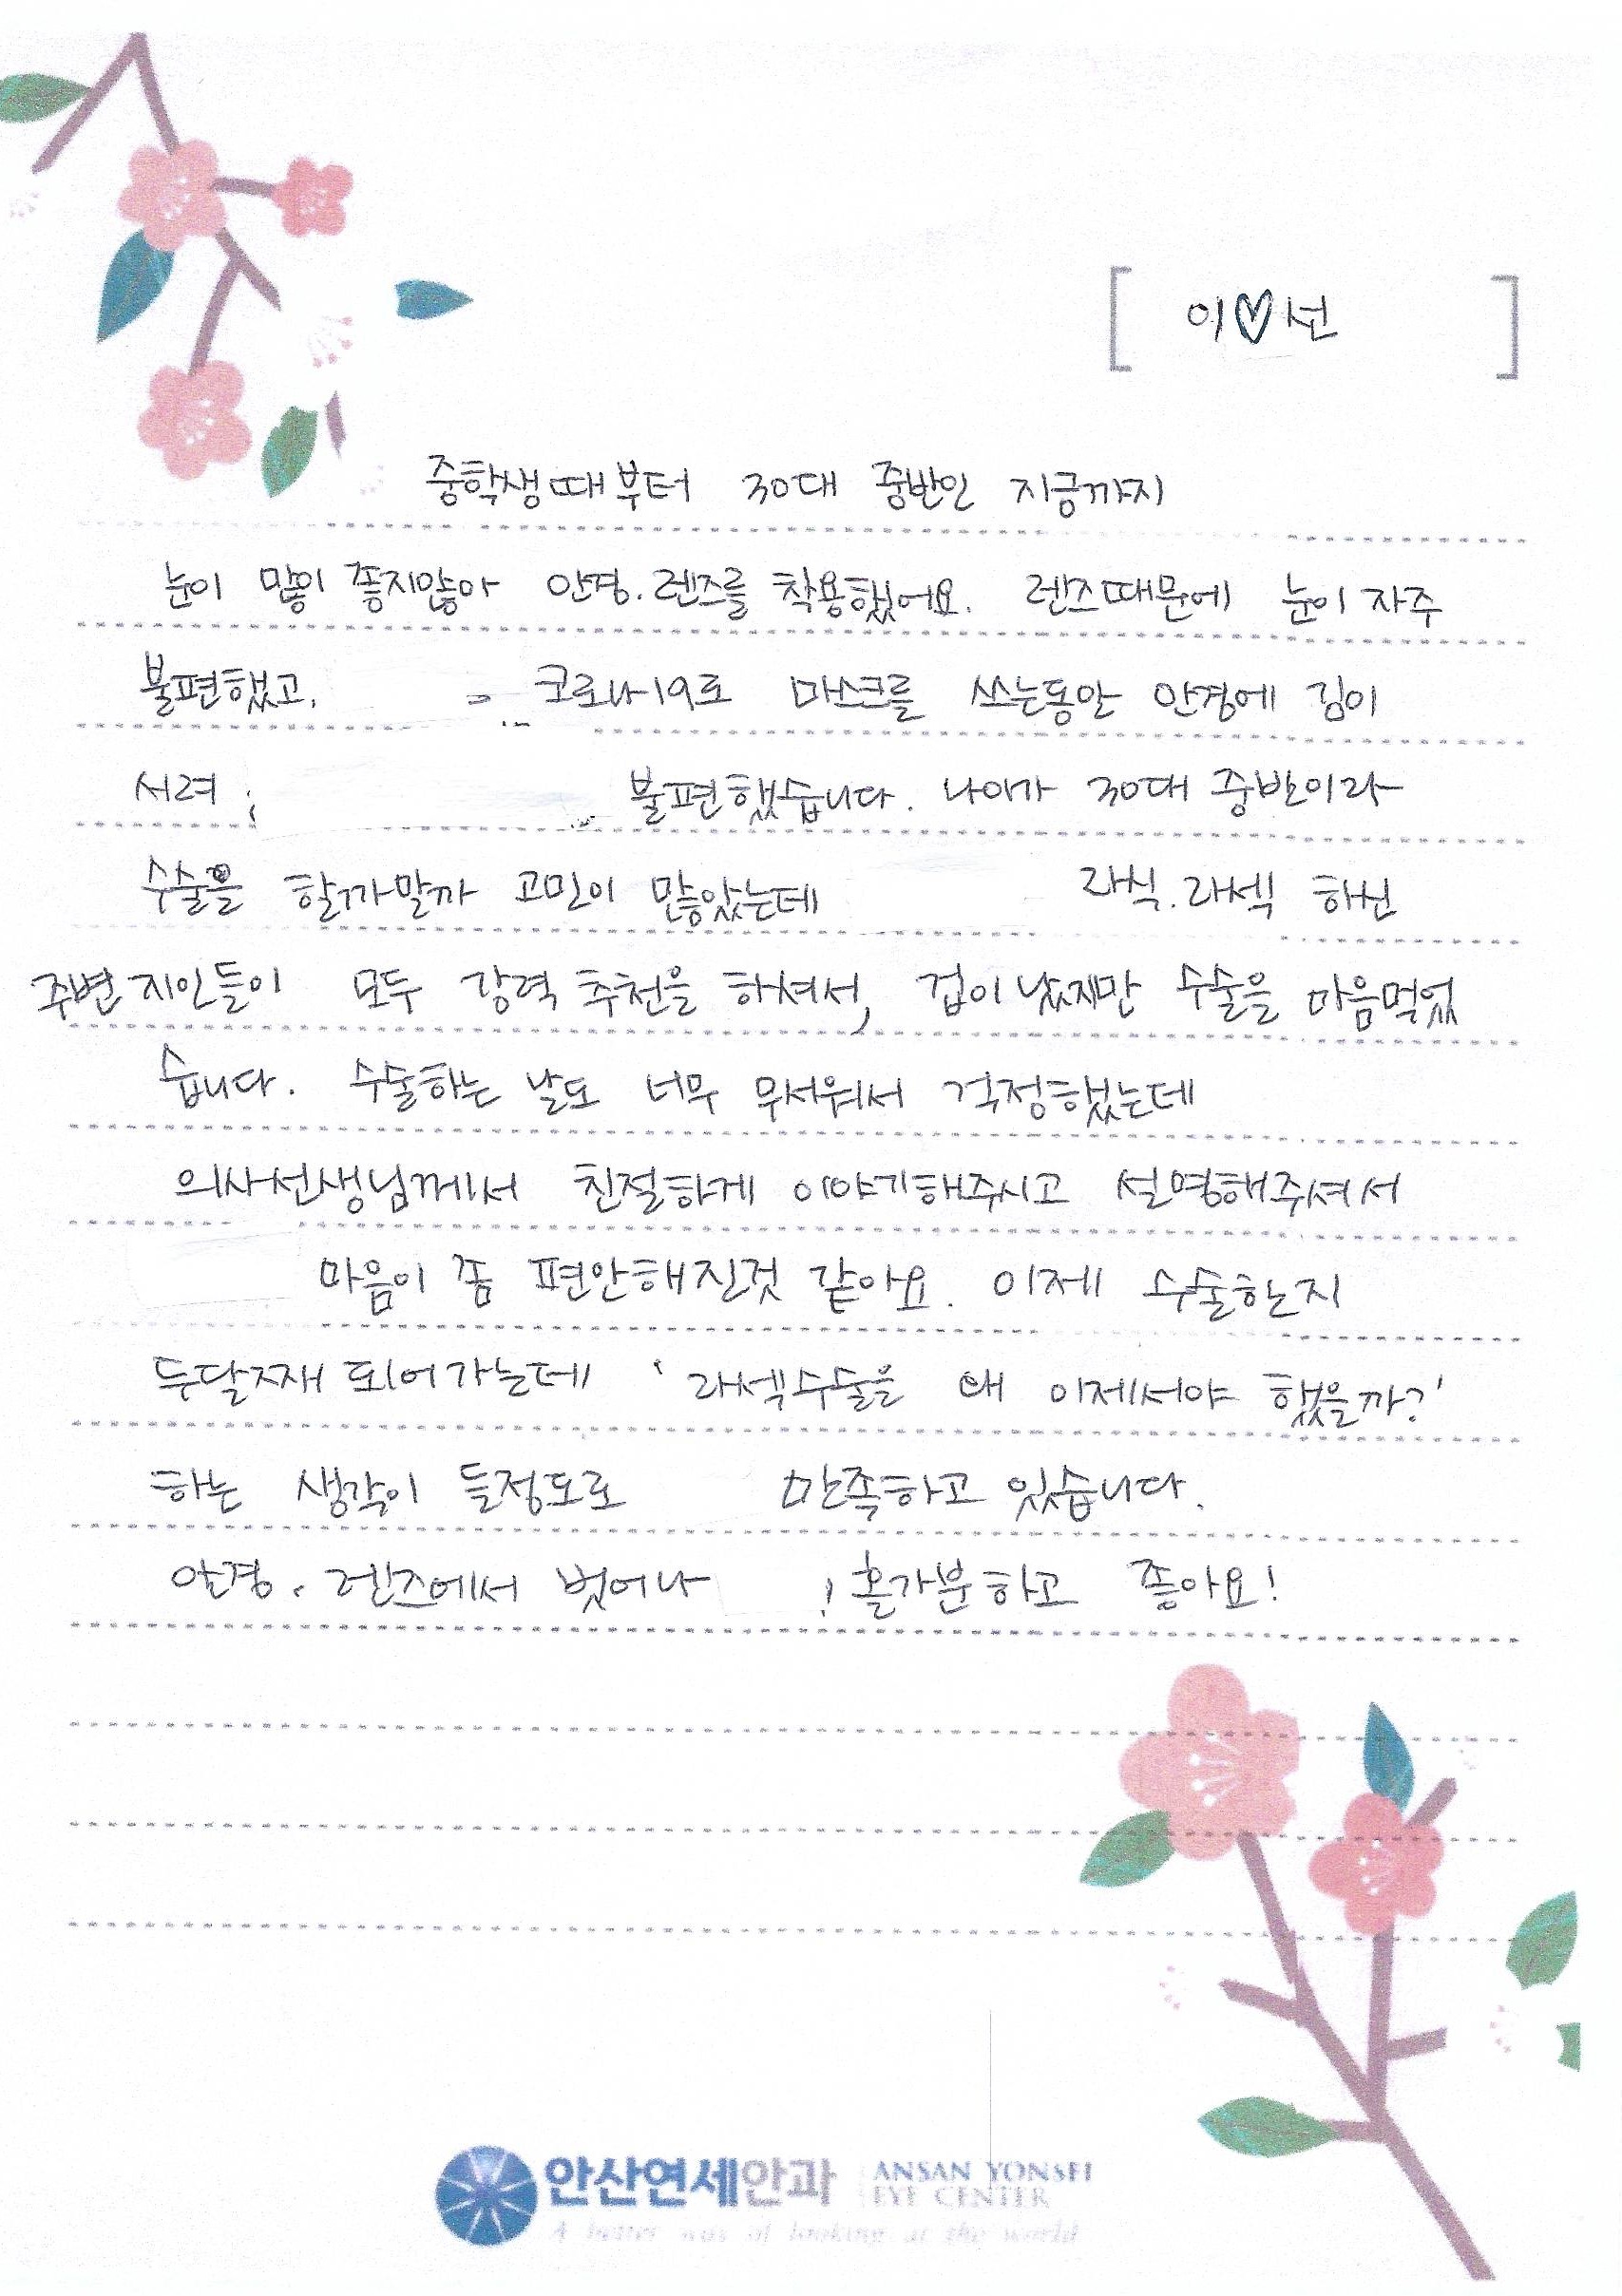 [ 이♡선 ]
중학생때부터 30대 중반인 지금까지
눈이 많이 좋지않아 안경.렌즈를 착용했어요. 렌즈때문에 눈이 자주
불편했고, 코로나19로 마스크를 쓰는동안 안경에 김이
서려 불편했습니다. 나이가 30대 중반이라
수술을 할까말까 고민이 많았는데 라식.라섹 하신
주변 지인들이 모두 강력 추천을 하셔서, 겁이 났지만 수술을 마음먹었
습니다. 수술하는 날도 너무 무서워서 걱정했는데
의사선생님께서 친절하게 이야기해주시고 설명해주셔서
마음이 좀 편안해진것 같아요. 이제 수술한지
두달째 되어가는데 '라섹수술을 왜 이제서야 했을까?'
하는 생각이 들정도로 만족하고 있습니다.
안경. 렌즈에서 벗어나 홀가분하고 좋아요!
안산연세안과 ANSAN YONSEI
EYE CENTER
A better way of looking at the world